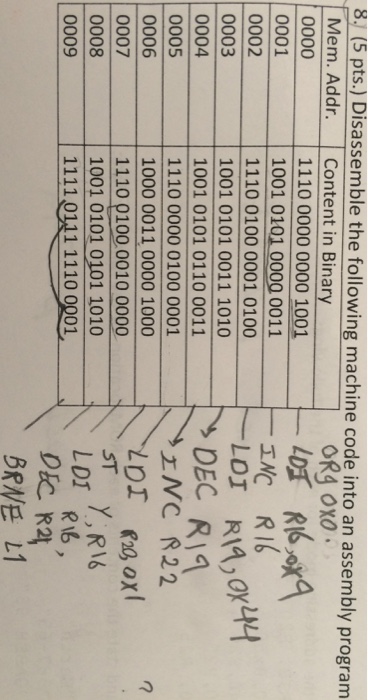 8. (5 pts.) Disassemble the following machine code into an assembly program
Mem. Addr. Content in Binary ORG 0x0.
0000 1110 0000 0000 1001 LDI R16,0x9
0001 1001 0101 0000 0011 INC R16
0002 1110 0100 0001 0100 LDI R19,0x44
0003 1001 0101 0011 1010 DEC R19
0004 1001 0101 0110 0011 INC R22
0005 1110 0000 0100 0001 LDI 0x1 ?
0006 1000 0011 0000 1000 ST Y, R16
0007 1110 0100 0010 0000 LDI
0008 1001 0101 0101 1010 DEC R21
0009 1111 0111 1110 0001 BRNE L1